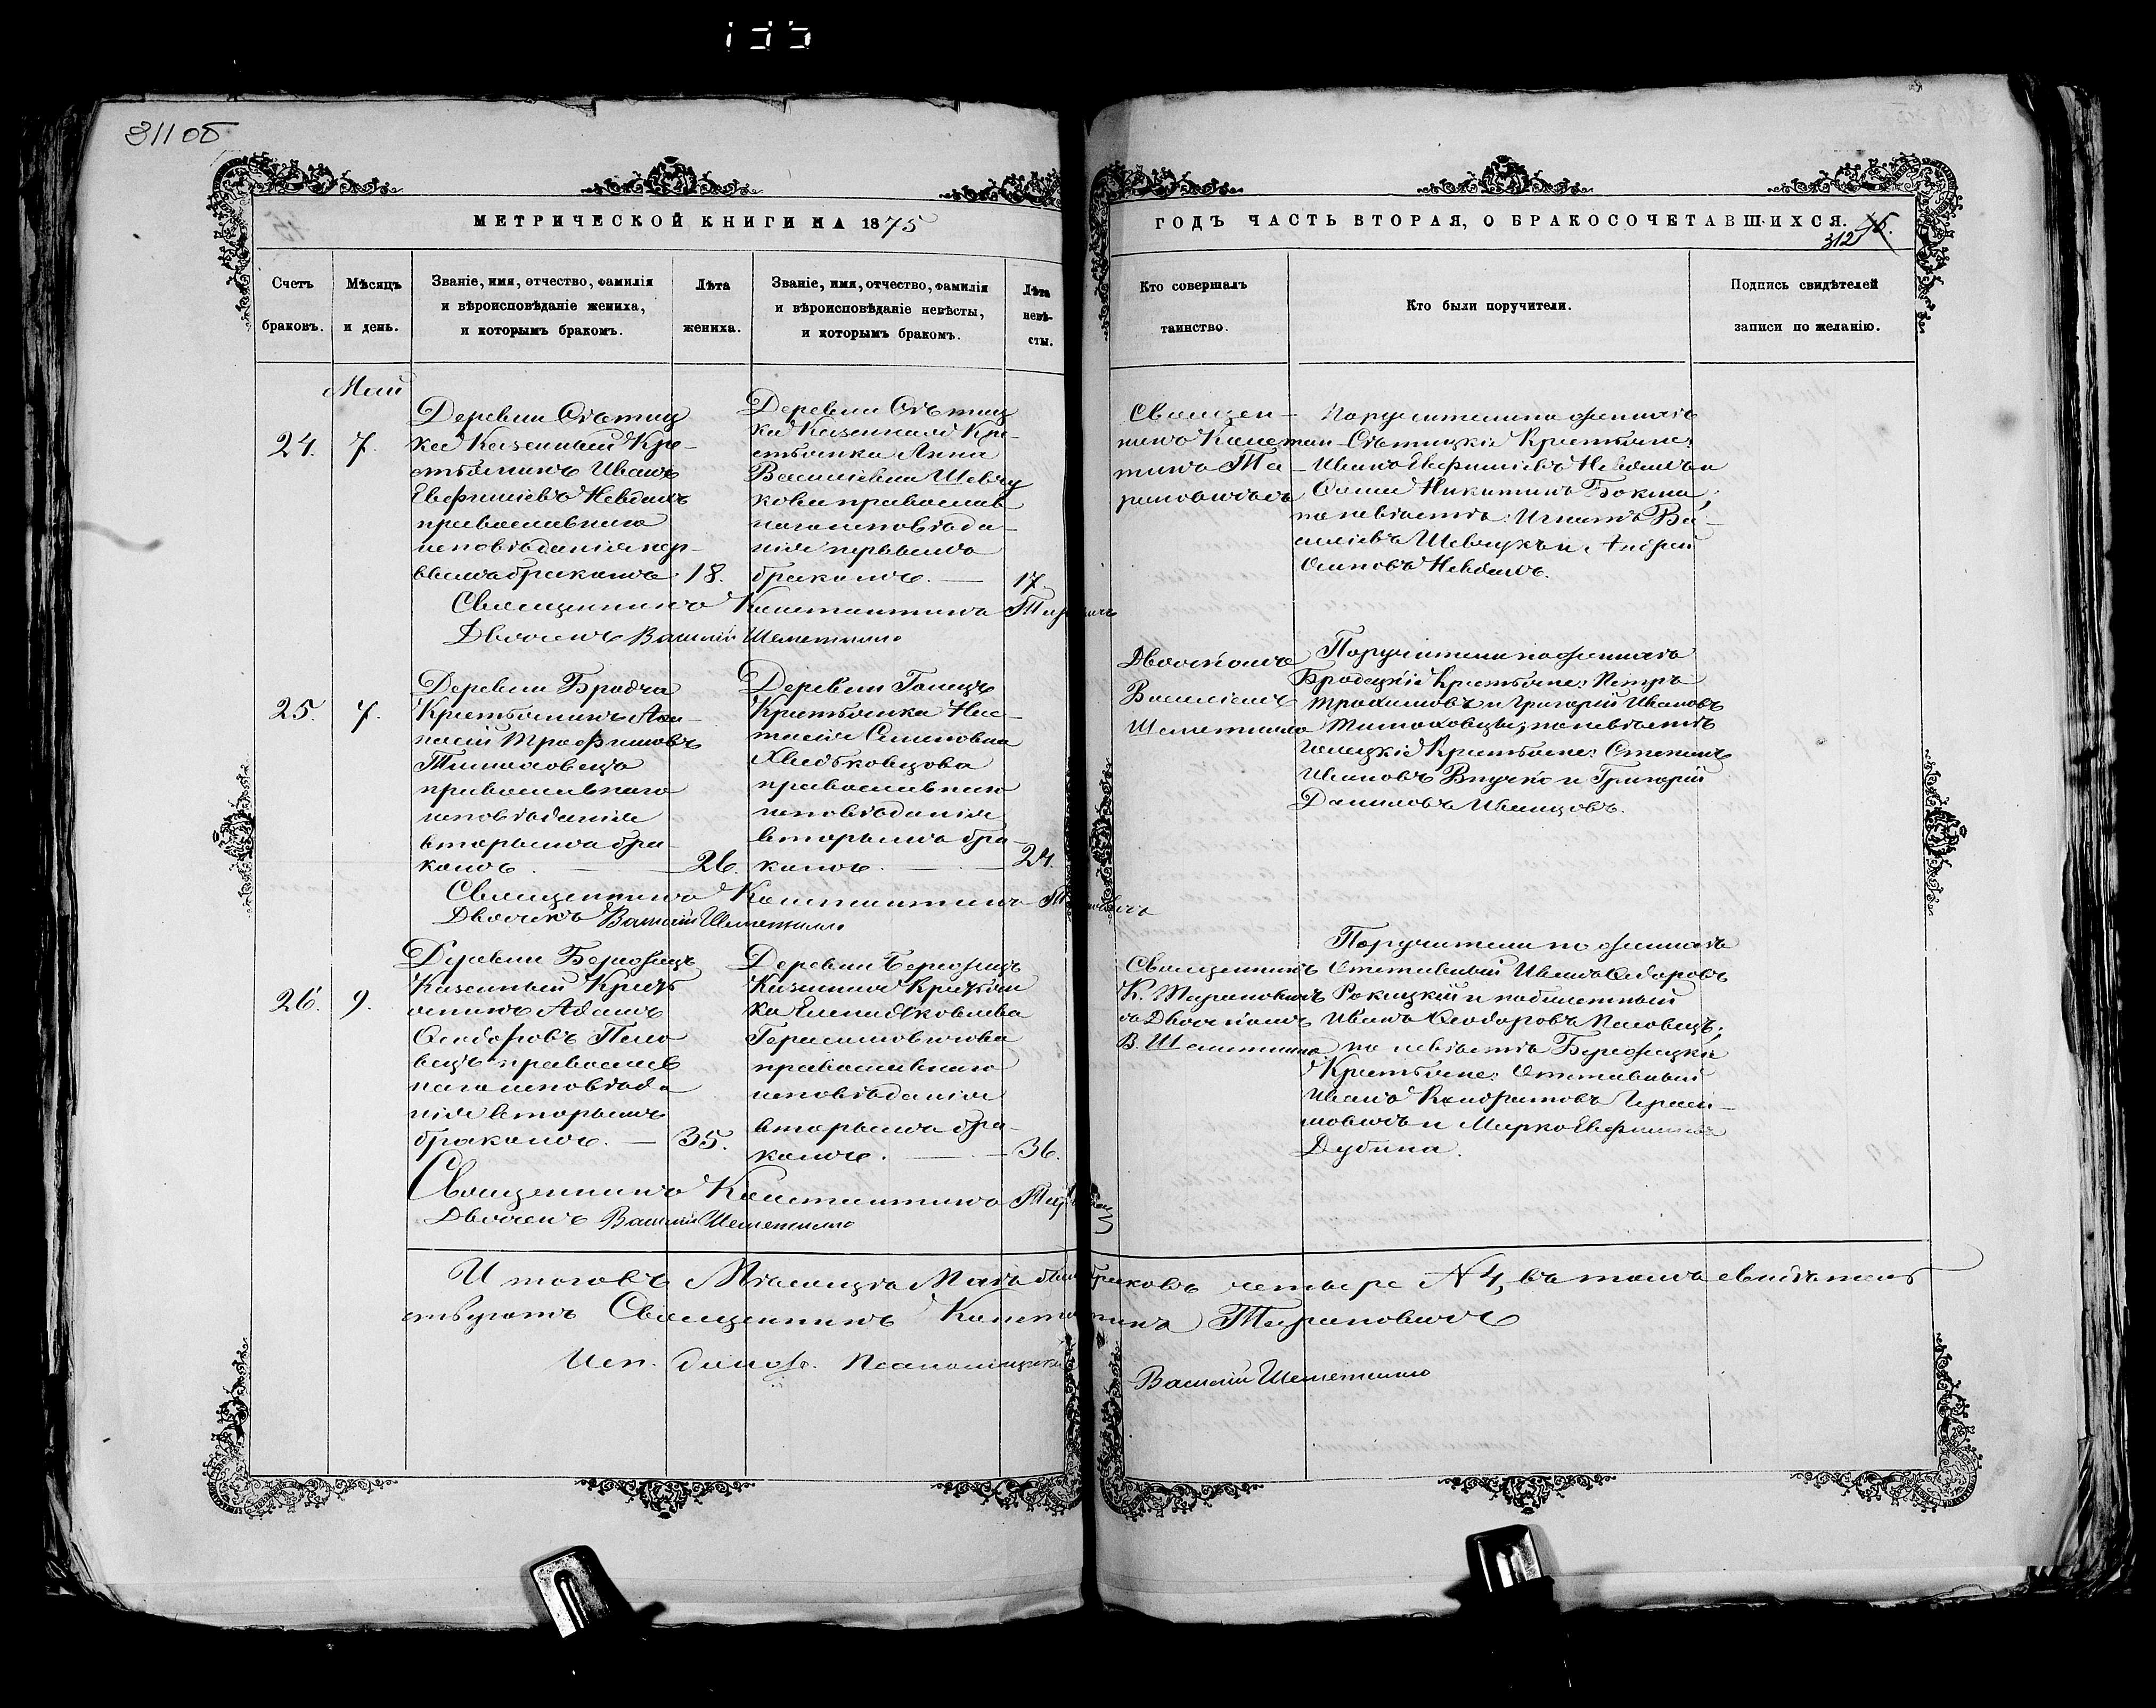 311 об
МЕТРИЧЕСКОЙ КНИГИ НА 1875
ГОДЪ ЧАСТЬ ВТОРАЯ, О БРАКОСОЧЕТАВШИХСЯ.
312
Счетъ
браковъ.
Мѣсяцъ
и день.
Званіе, имя, отчество, фамилія
и вѣроисповѣданіе жениха,
и которымъ бракомъ.
Лѣта
жениха.
Званіе, имя, отчество, фамилія
и вѣроисповѣданіе невѣсты,
и которымъ бракомъ.
Лѣта
невѣ-
сты.
Кто совершалъ
таинство.
Кто были поручители.
Подпись свидѣтелей
записи по желанію.
Май
24.
7.
Деревни
Казенный Кре-
стьянинъ Иванъ
православнаго
исповѣданія пер-
вымъ бракомъ
18.
Деревни
Казенная Кре-
стьянка Анна
Василіева Шевчу
кова православ
наго исповѣда-
нія первымъ
бракомъ. —
17.
Священ-
никъ Констан-
тинъ Та-
рановичъ
Поручители по женихѣ
Крестьяне:
Иванъ и
Никитинъ
по невѣстѣ: Игнатъ Ва-
силіевъ Шевчукъ и Андрей
Осиповъ
Священникъ Константинъ Тарановичъ
Дьячекъ Василій Шеметилло
25.
7.
Деревни Бродча
Крестьянинъ Аѳа-
насій Трофимовъ
Тимоховецъ
православнаго
исповѣданія
вторымъ бра-
комъ. —
26.
Деревни Голицъ
Крестьянка Нас-
тасія Семеновна
православнаго
исповѣданія
вторымъ бра-
комъ. —
24.
Дьячкомъ
Василіемъ
Шеметилло
Поручители по женихѣ
Бродецкіе Крестьяне: Петръ
и Григорій Ивановъ
Тимоховцы; по невѣстѣ
Голицкіе Крестьяне: Степанъ
Ивановъ и Григорій
Даниловъ
Священникъ Константинъ
Дьячекъ Василій Шеметилло
26.
9.
Деревни
Казенный Кресть
янинъ Адамъ
Ѳеодоровъ
православ
наго исповѣда
нія вторымъ
бракомъ. —
35.
Деревни
Казенная Крестьян
ка Елена Яковлева
Герасимовичова
православнаго
исповѣданія
вторымъ бра-
комъ. —
36.
Священникъ
К. Тарановичъ
съ Дьячкомъ
В. Шеметилло
Поручители по женихѣ
Отставный Иванъ Ѳедоровъ
и побилетный
Иванъ Ѳеодоровъ
по невѣстѣ
Крестьяне: Отставный
Иванъ Кондратовъ Гераси-
мовичъ и Марко
Дубина.
Священникъ Константинъ
Дьячекъ Василій Шеметилло
Итого въ Мѣсяцѣ Маѣ браковъ четыре № 4, въ томъ свидѣтель
ствуютъ Священникъ Константинъ Тарановичъ
Исп. должн. Псаломщика
Василій Шеметилло